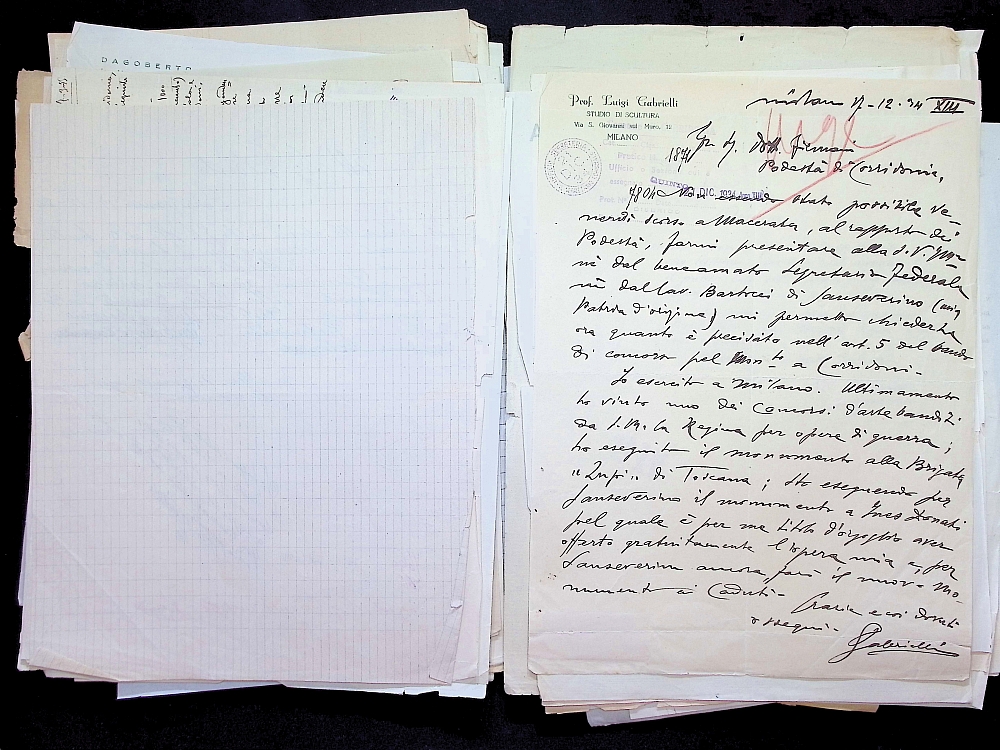 DAGOBERTO
Prof. Luigi Gabrielli
STUDIO DI SCULTURA
Via S. Giovanni sul Muro, 12
MILANO
Milano 17-12-34 XIII
Ill. Sig. Dott.
Podestà di Corridonia,
1871
7804
QUINTO DIC. 1934
Non essendo stato possibile ve-
nerdì scorso a Macerata, al rapporto dei
Podestà, farmi presentare alla S.V. Ill.ma
nè dal beneamato Segretario Federale
nè dal Cav. Bartocci di Sanseverino (mia
Patria d'origine) mi permetto chiederLa
ora quanto è precisato nell'art. 5 del bando
di concorso pel Mon.to a Corridoni-
Io esercito a Milano. Ultimamente
ho vinto uno dei Concorsi d'arte banditi
da S.M. la Regina per opere di guerra;
ho eseguito il monumento alla Brigata
"Lupi" di Toscana; sto eseguendo per
Sanseverino il monumento a Ines Donati
pel quale è per me titolo d'orgoglio aver
offerto gratuitamente l'opera mia e, per
Sanseverino ancora, farò il nuovo Mo-
numento ai Caduti-
Grazie e coi dovuti
ossequi-
Gabrielli